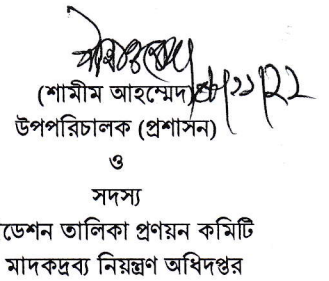 (শামীম আহম্মেদ)
উপপরিচালক (প্রশাসন)
ও
সদস্য
ডেশন তালিকা প্রণয়ন কমিটি
মাদকদ্রব্য নিয়ন্ত্রণ অধিদপ্তর